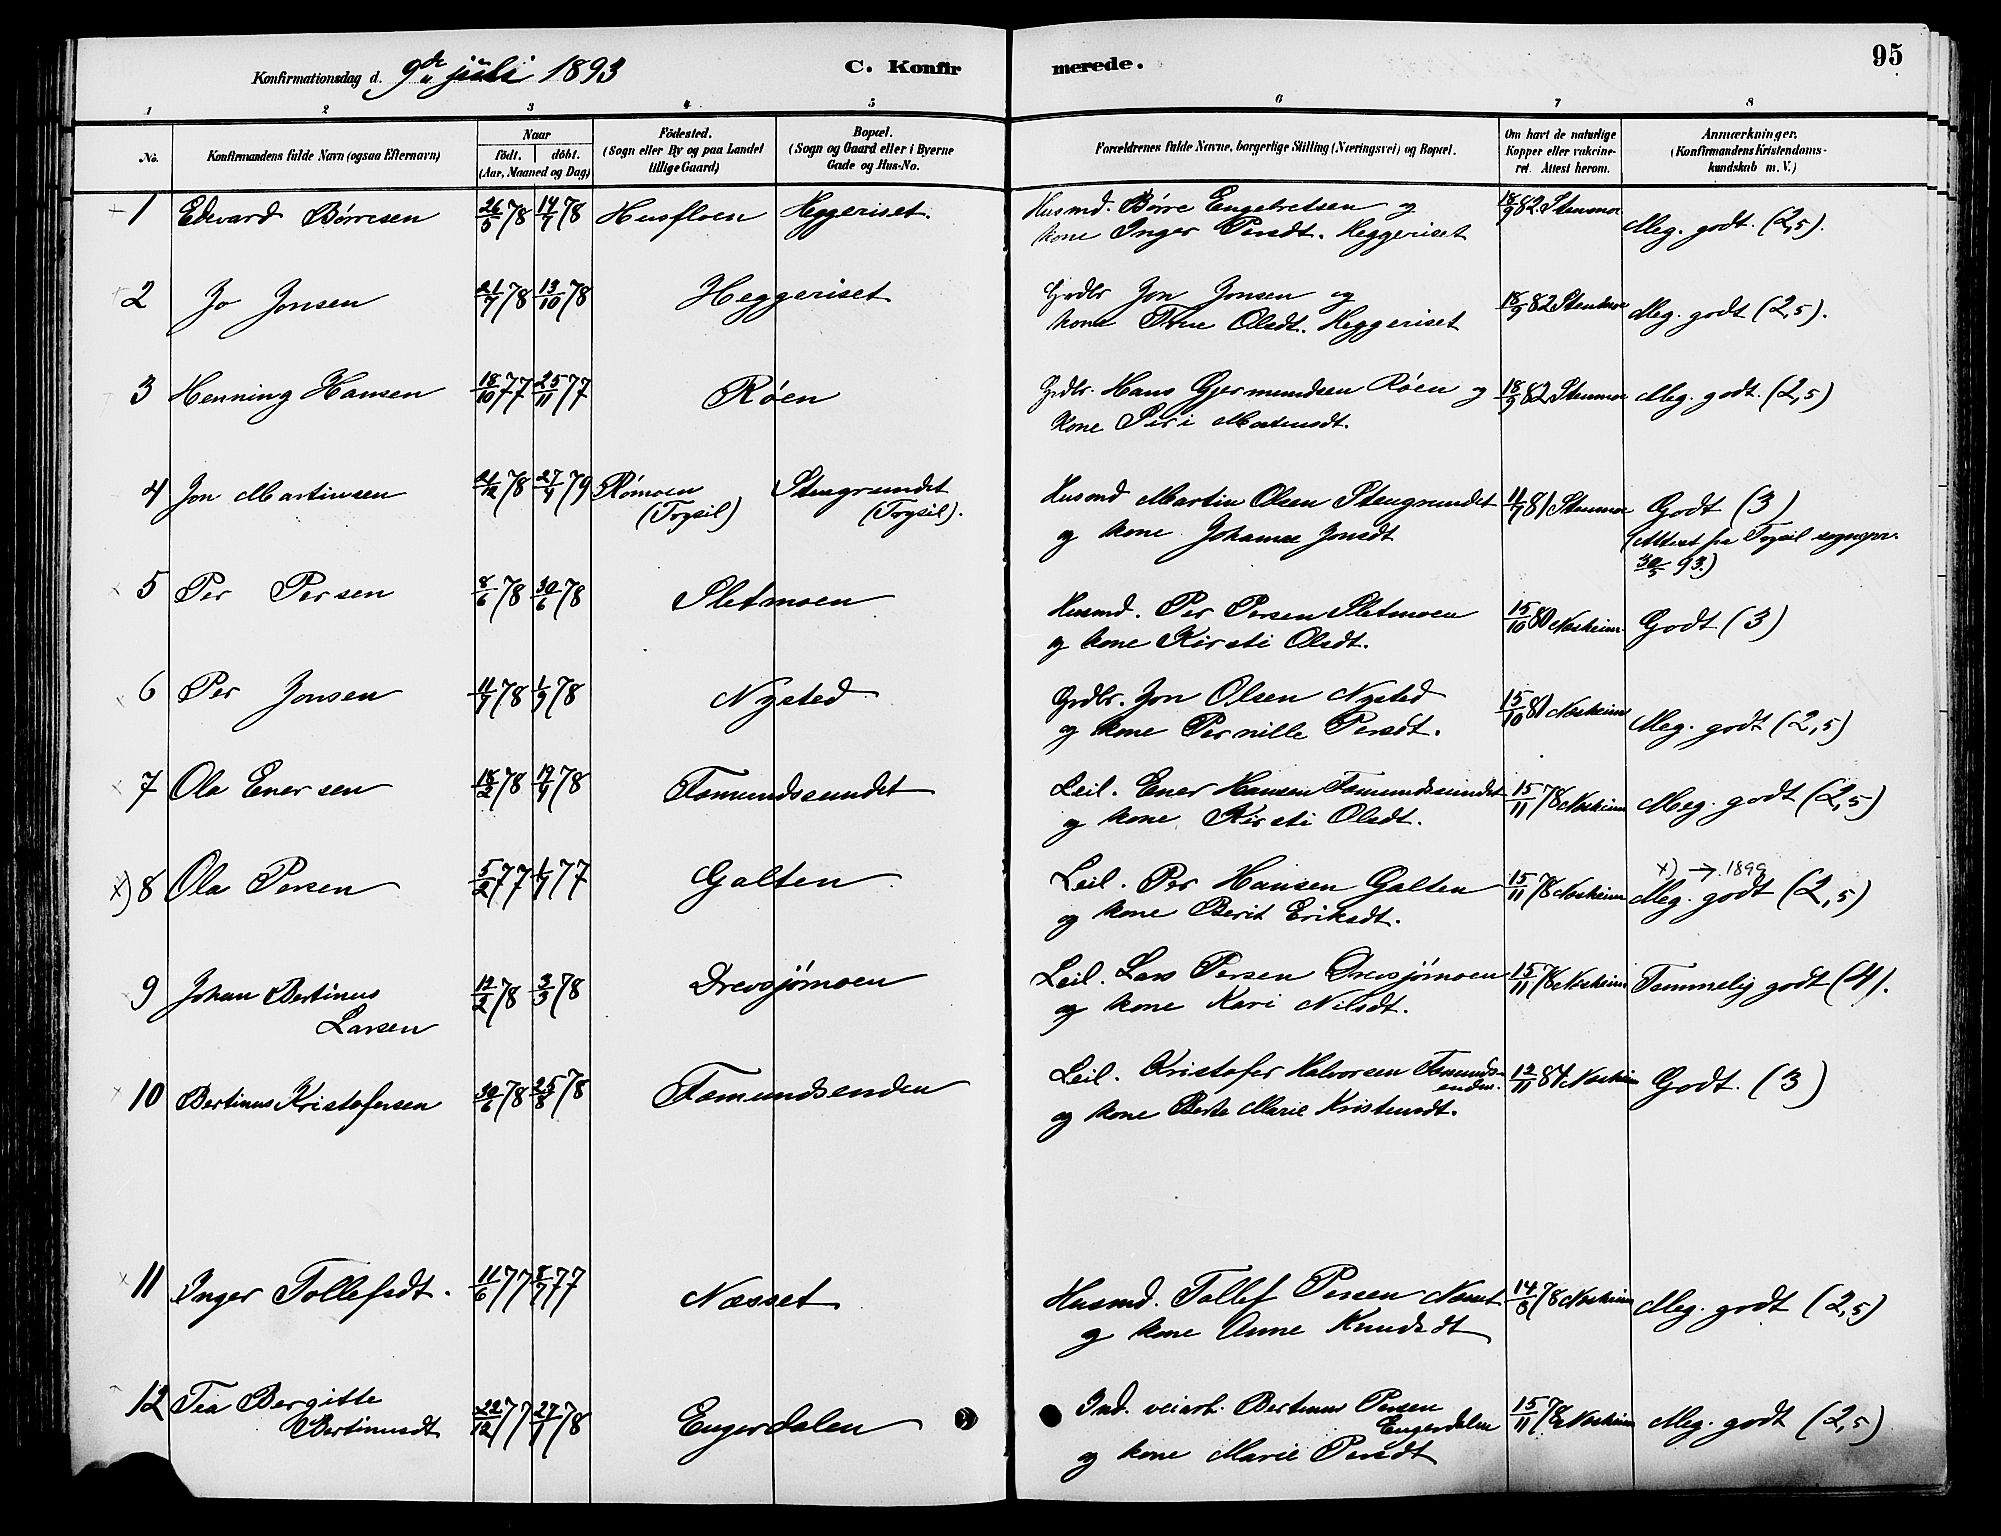 Konfirmationsdag d. 9de juli 1893 C. Konfirmerede. 95
1 2 3 4 5 6 7 8
No. Konfirmandens fulde Navn (ogsaa Efternavn) Naar födt. döbt. (Aar, Maaned og Dag) Födested. (Sogn eller By og paa Landet tillige Gaard) Bopæl. (Sogn og Gaard eller i Byerne Gade og Hus-No. Forældrenes fulde Navne, borgerlige Stilling (Næringsvei) og Bopæl. Om havt de naturlige Kopper eller vakcineret. Attest herom. Anmærkninger. (Konfirmandens Kristendomskundskab m. V.)
1 Edevard Börresen 26/5 78 14/7 78 Husfloen Heggeriset. Husmd. Börre Engebretsen og 18/9 82 Stenmoe Meg. godt. (2,5).
kone Inger Persdt. Heggeriset
2 Jo Jonsen 21/7 78 13/10 78 Heggeriset Grdbr Jon Jonsen og 18/9 82 Stenmoe Meg. godt (2,5).
kone Trne Olsdt. Heggeriset
3 Henning Hansen 18/10 77 25/11 77 Röen Grdbr. Hans Gjermundsen Röen og 18/9 82 Stenmoe Meg. godt. (2,5)
kone Siri Mortensdt.
4 Jon Martinsen 21/12 78 27/4 79 Römoen Stengrundet Husmd Martin Olsen Stengrundet 11/7 81 Stenmoe Godt (3)
(Trysil) (Trysil). og kone Johanne Jonsdt (Attest fra Trysil sognepr.
30/5 93.)
5 Per Persen 8/6 78 30/6 78 Sletmoen Husmd. Per Persen Sletmoen 15/10 80 Noskeim Godt (3)
og kone Kirsti Olsdt.
6 Per Jonsen 11/7 78 1/9 78 Nysted Grdbr. Jon Olsen Nysted 15/10 81 Noskeim Meg. godt (2,5)
og kone Pernille Persdt.
7 Ola Enersen 18/2 78 19/4 78 Fæmundssundet Leil. Ener Hansen Fæmundssundet 15/11 78 Noskeim Meg. godt (2,5)
og kone Kirsti Olsdt.
x) → 1899
x) 8 Ola Persen 5/2 77 1/7 77 Galten Leil. Per Hansen Galten 15/11 78 Noskeim Meg. godt (2,5)
og kone Berit Eriksdt.
9 Johan Bertinus 12/2 78 3/3 78 Drevsjömoen Leil. Lars Persen Drevsjömoen 15/11 78 Noskeim Temmelig godt (4).
Larsen og kone Kari Nilsdt.
10 Bertinus Kristofersen 30/6 78 25/8 78 Fæmundsenden Leil. Kristofer Halvorsen Fæmundsenden. 12/11 84 Noskeim Godt. (3)
og kone Berte Marie Kristensdt.
11 Inger Tollefsdt. 11/6 77 8/7 77 Næsset Husmd. Tollef Persen Næset 14/8 78 Noskeim Meg. godt (2,5)
og kone Anne Knudsdt
12 Tea Bergitte 22/12 77 27/1 78 Engerdalen Ind. veiarb. Bertinus Persen 15/11 78 Noskeim Meg. godt (2,5)
Bertinusdt Engerdalen
og kone Marie Persdt